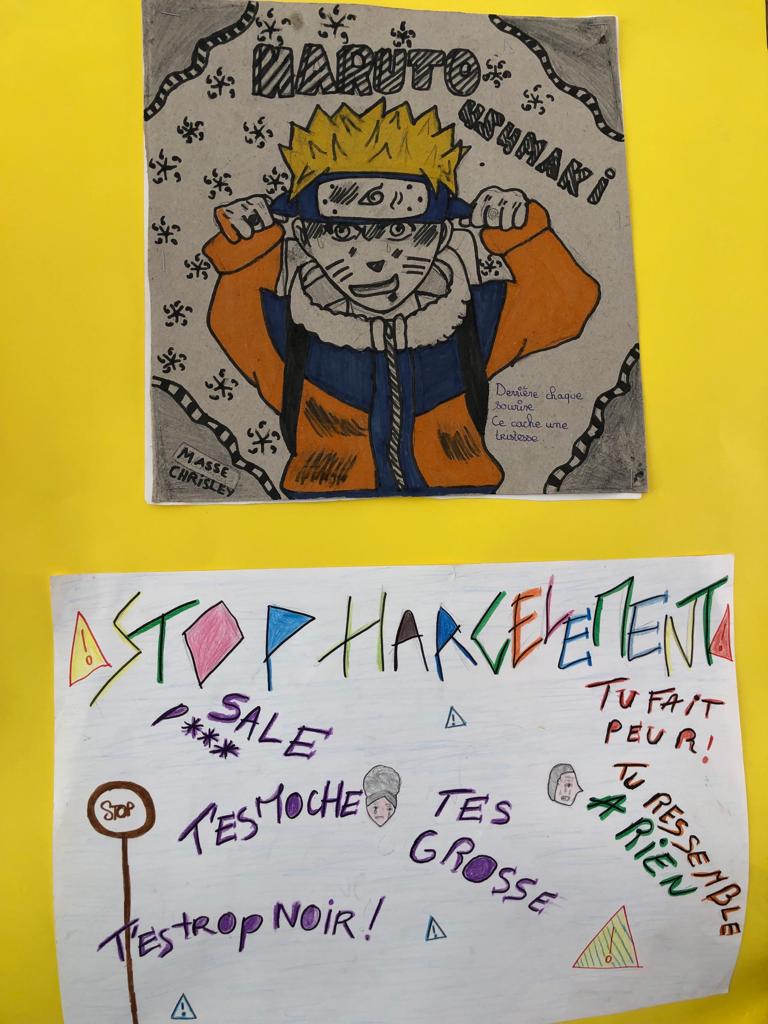 NARUTO
USUMAKi
Derrière chaque
sourire
Ce cache une
tristesse.
MASSE
CHRISLEY
STOP HARCELEMENT
SALE
P***
TU FAIT
PEUR!
STOP
T'ES MOCHE
T'ES
GROSSE
TU RESSEMBLE
A RiEN
T'ES trop NOiR!